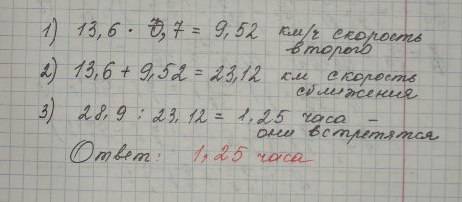 1) 13,6 · 0,7 = 9,52 км/ч скорость
второго
2) 13,6 + 9,52 = 23,12 км скорость
сближения
3) 28,9 : 23,12 = 1,25 часа –
они встретятся
Ответ: 1,25 часа